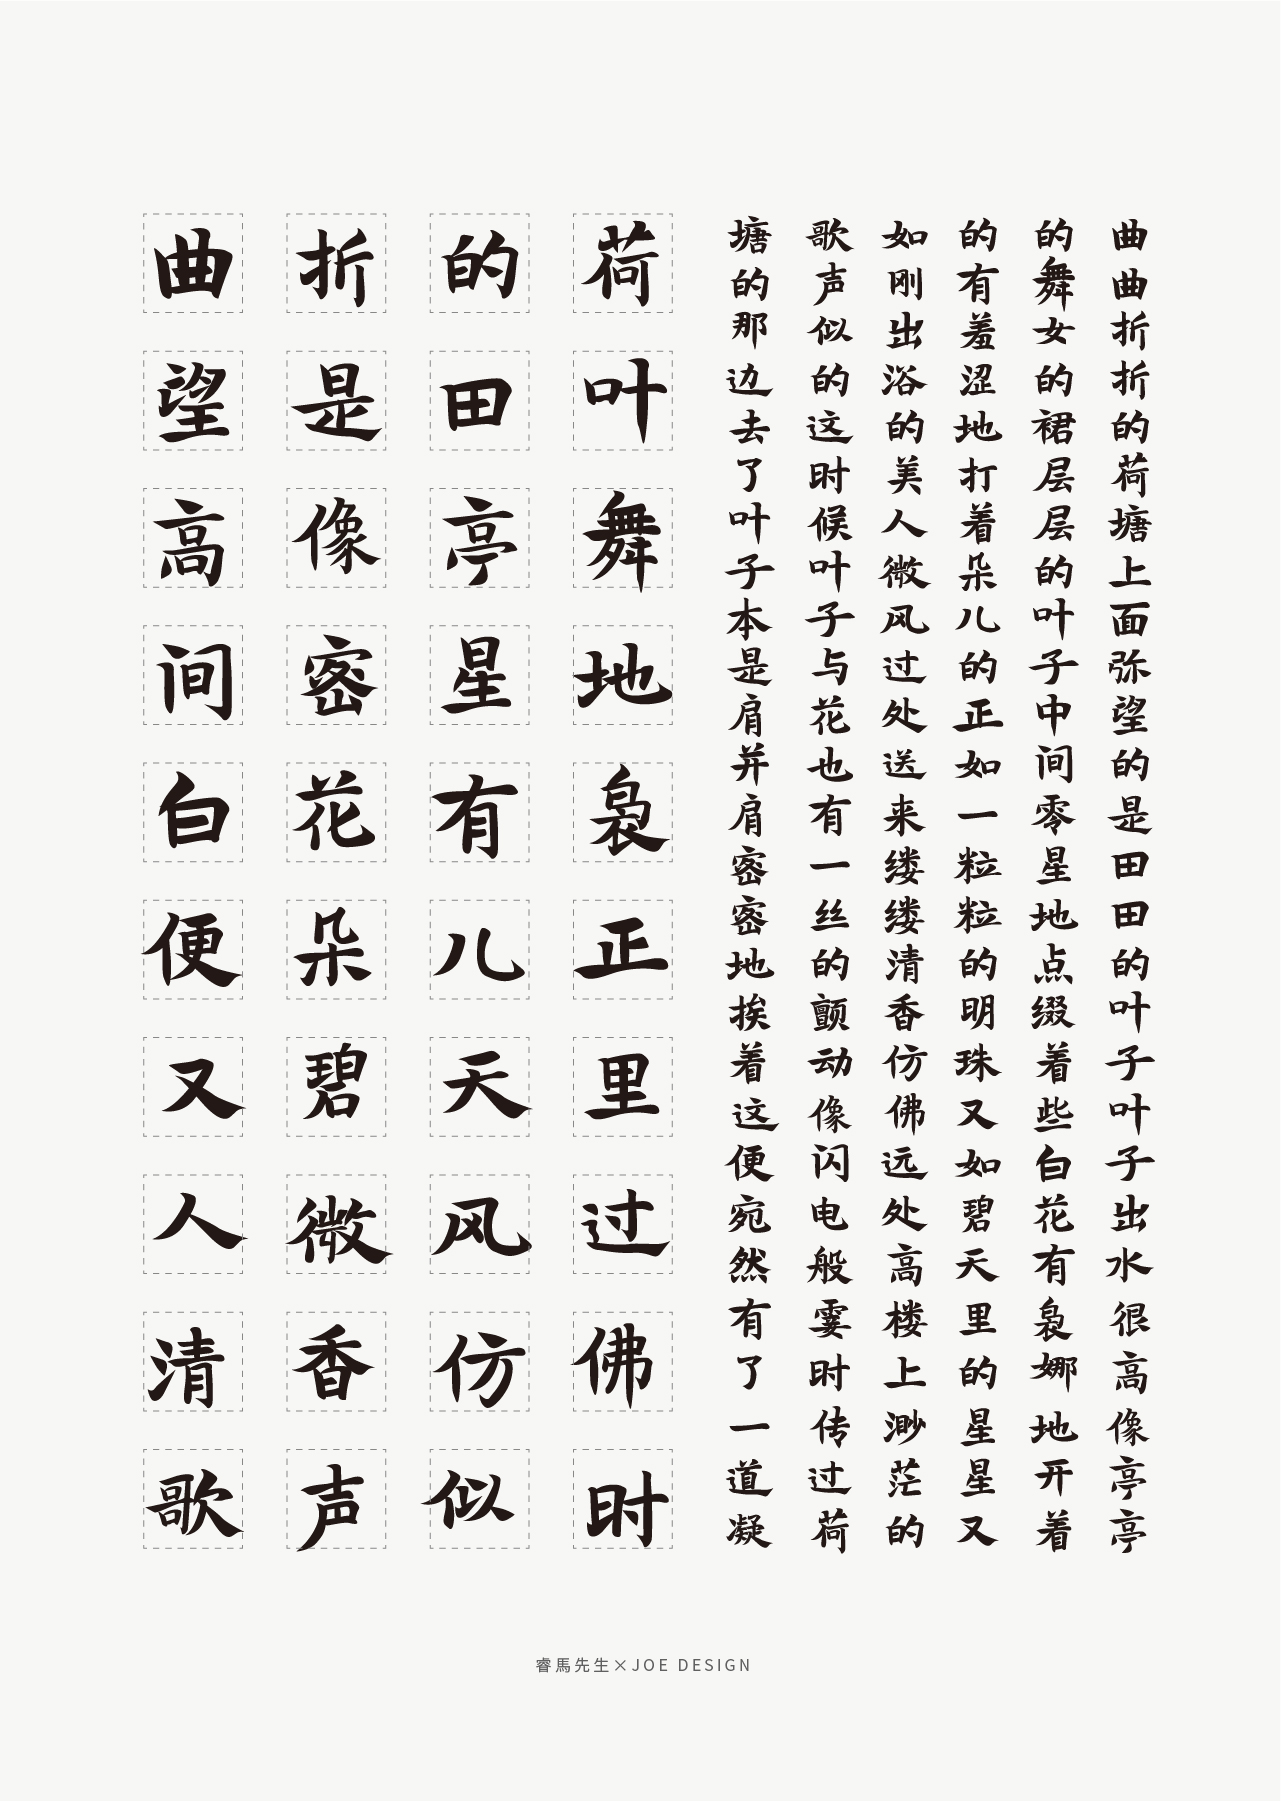 曲折的荷
望是田叶
高像亭舞
间密星地
白花有袅
便朵儿正
又碧天里
人微风过
清香仿佛
歌声似时
曲曲折折的荷塘上面弥望的是田田的叶子叶子出水很高像亭亭
的舞女的裙层层的叶子中间零星地点缀着些白花有袅娜地开着
的有羞涩地打着朵儿的正如一粒粒的明珠又如碧天里的星星又
如刚出浴的美人微风过处送来缕缕清香仿佛远处高楼上渺茫的
歌声似的这时候叶子与花也有一丝的颤动像闪电般霎时传过荷
塘的那边去了叶子本是肩并肩密密地挨着这便宛然有了一道凝
睿馬先生×JOE DESIGN